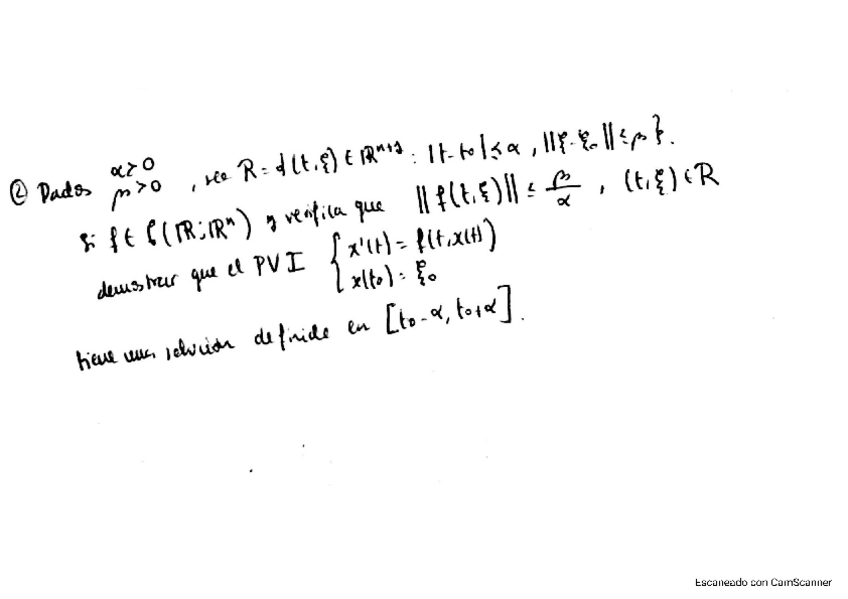 ② Dados α>0 β>0, sea R = {(t,ξ) ∈ ℝⁿ⁺¹ : |t-t₀| ≤ α, ||ξ-ξ₀|| ≤ β}.
Si f ∈ C(R; ℝⁿ) y verifica que ||f(t,ξ)|| ≤ β/α, (t,ξ) ∈ R
demostrar que el PVI { x'(t) = f(t,x(t))
x(t₀) = ξ₀
tiene una solución definida en [t₀-α, t₀+α].
Escaneado con CamScanner